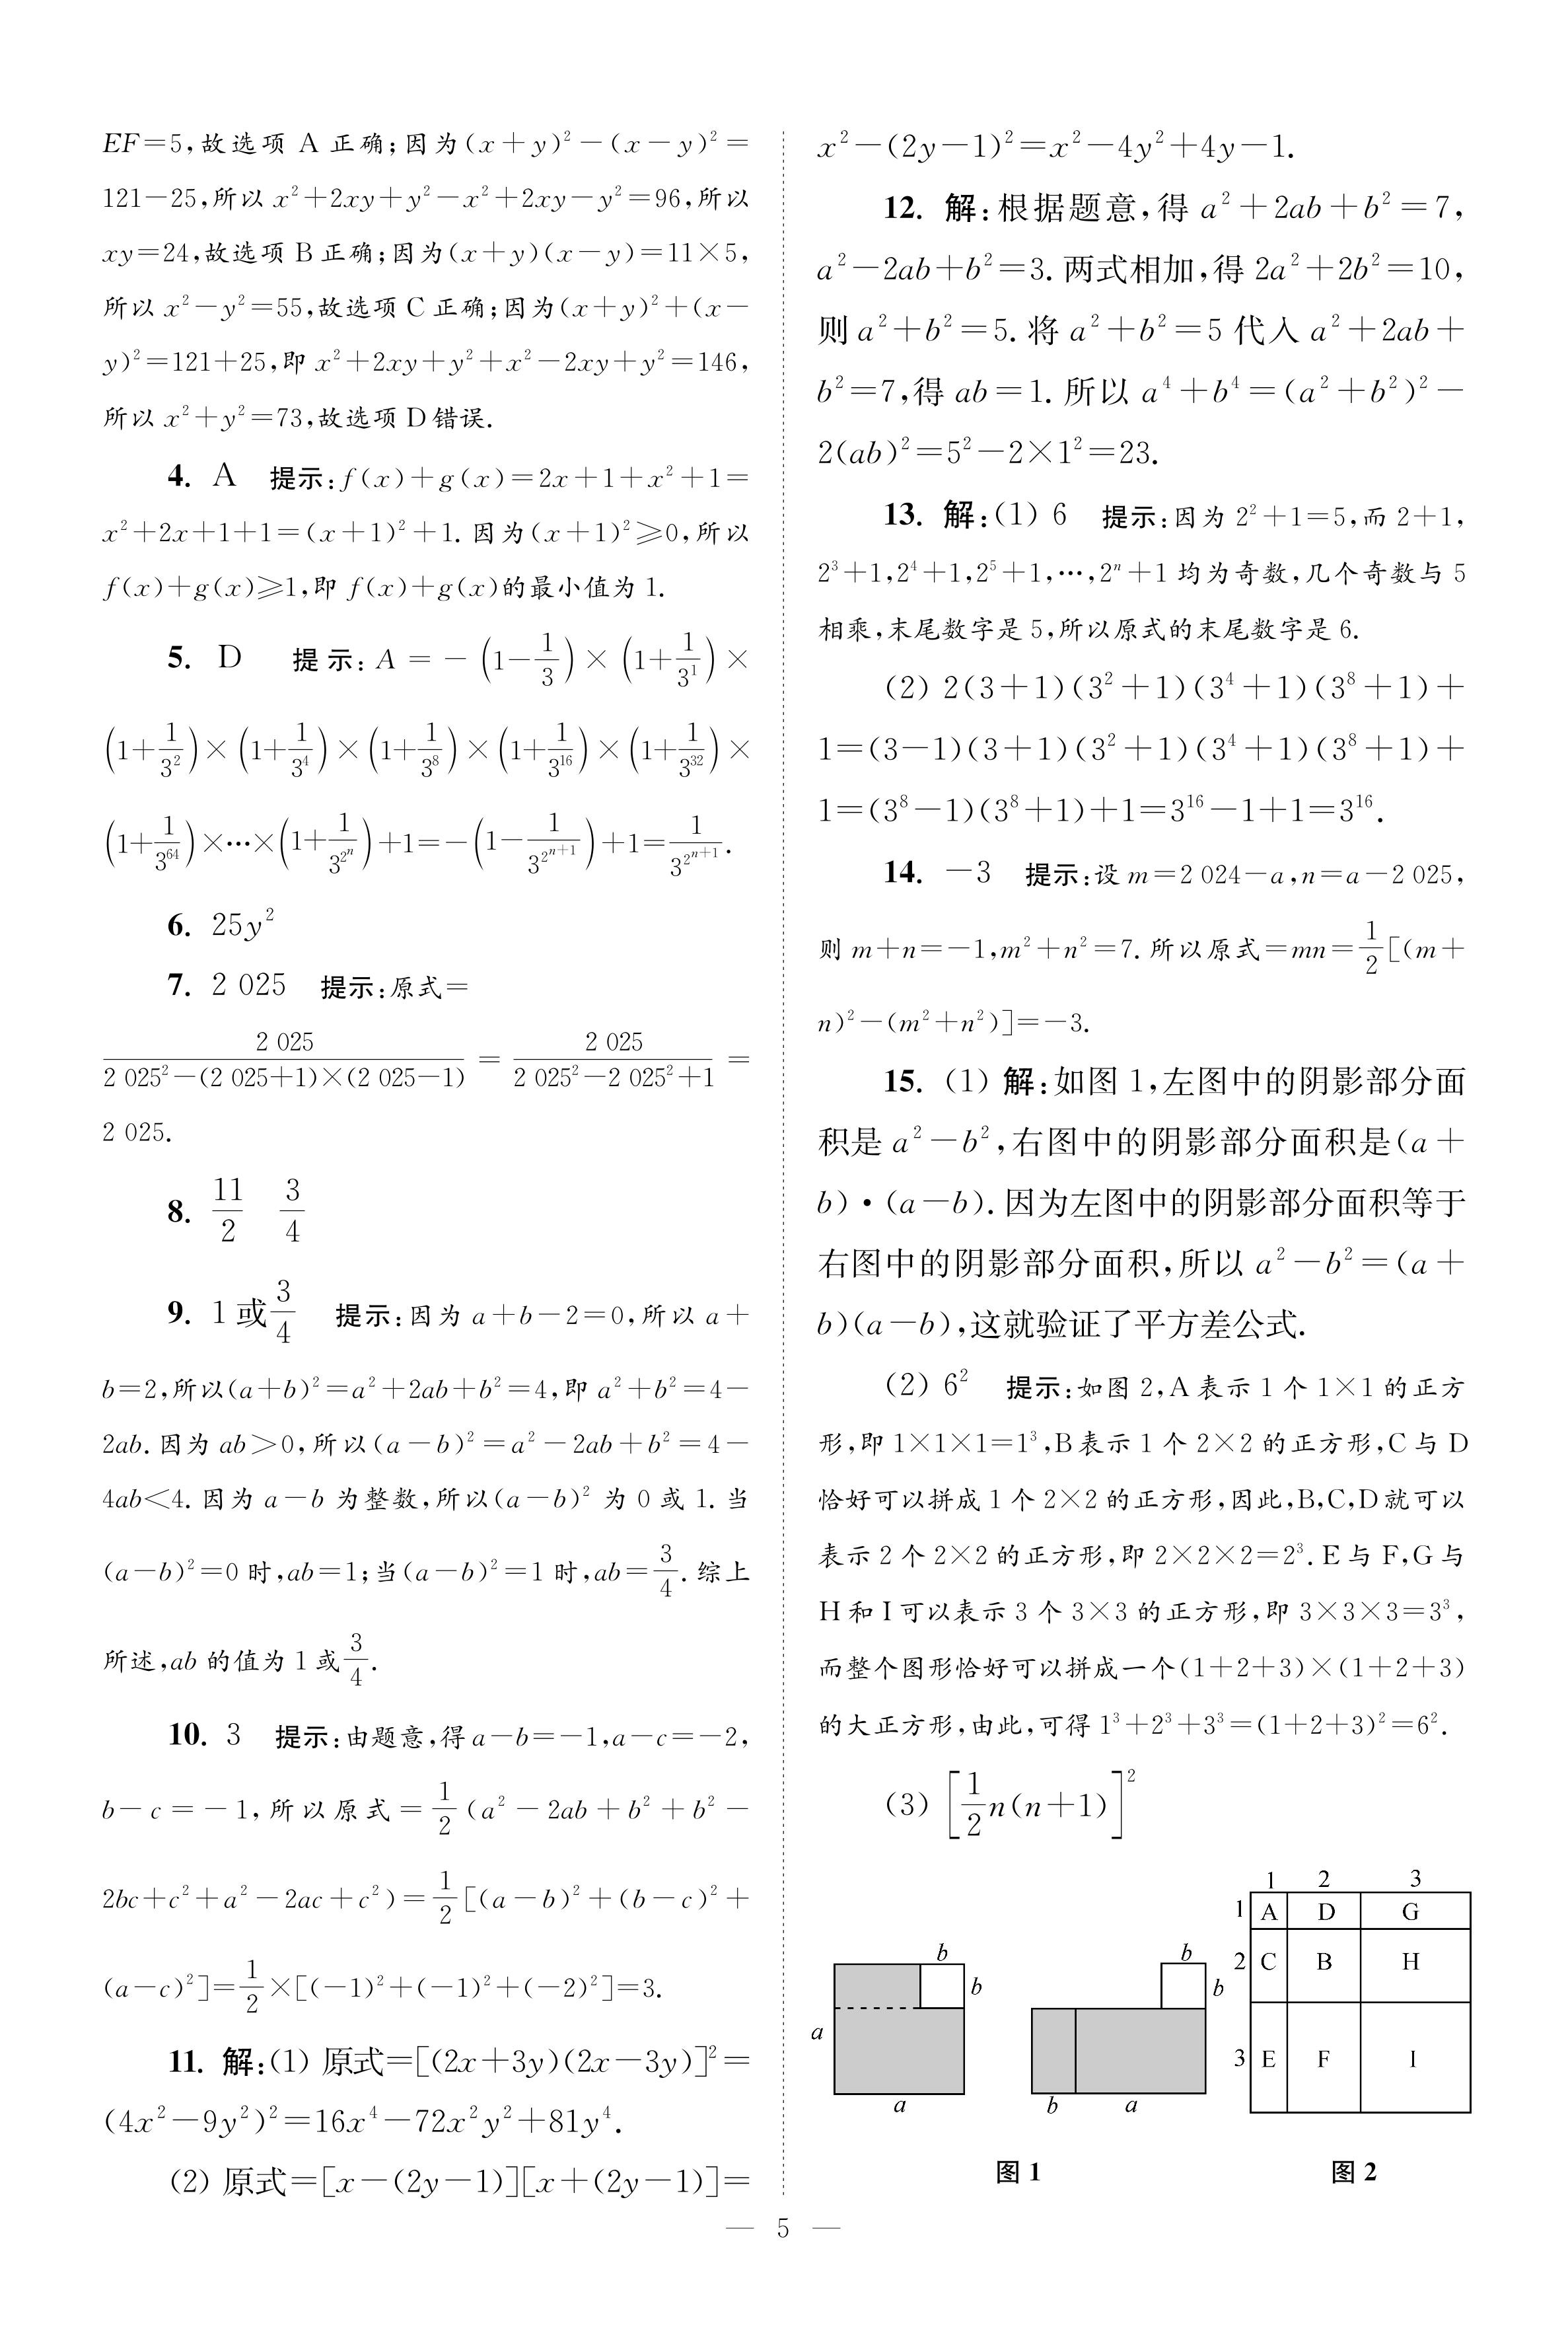 EF=5,故选项 A 正确;因为(x+y)²-(x-y)²=
121-25,所以 x²+2xy+y²-x²+2xy-y²=96,所以
xy=24,故选项 B 正确;因为(x+y)(x-y)=11×5,
所以 x²-y²=55,故选项 C 正确;因为(x+y)²+(x-
y)²=121+25,即 x²+2xy+y²+x²-2xy+y²=146,
所以 x²+y²=73,故选项 D 错误.
4. A 提示:f(x)+g(x)=2x+1+x²+1=
x²+2x+1+1=(x+1)²+1. 因为(x+1)²≥0,所以
f(x)+g(x)≥1,即 f(x)+g(x)的最小值为 1.
5. D 提示:A=-(1-1/3)×(1+1/3¹)×
(1+1/3²)×(1+1/3⁴)×(1+1/3⁸)×(1+1/3¹⁶)×(1+1/3³²)×
(1+1/3⁶⁴)×…×(1+1/3^(2^n))+1=-(1-1/3^(2^(n+1)))+1=1/3^(2^(n+1)).
6. 25y²
7. 2 025 提示:原式=
2 025/(2 025²-(2 025+1)×(2 025-1))=2 025/(2 025²-2 025²+1)=
2 025.
8. 11/2 3/4
9. 1 或 3/4 提示:因为 a+b-2=0,所以 a+
b=2,所以(a+b)²=a²+2ab+b²=4,即 a²+b²=4-
2ab. 因为 ab>0,所以(a-b)²=a²-2ab+b²=4-
4ab<4. 因为 a-b 为整数,所以(a-b)² 为 0 或 1. 当
(a-b)²=0 时,ab=1;当(a-b)²=1 时,ab=3/4. 综上
所述,ab 的值为 1 或 3/4.
10. 3 提示:由题意,得 a-b=-1,a-c=-2,
b-c=-1,所以原式=1/2(a²-2ab+b²+b²-
2bc+c²+a²-2ac+c²)=1/2[(a-b)²+(b-c)²+
(a-c)²]=1/2×[(-1)²+(-1)²+(-2)²]=3.
11. 解:(1) 原式=[(2x+3y)(2x-3y)]²=
(4x²-9y²)²=16x⁴-72x²y²+81y⁴.
(2) 原式=[x-(2y-1)][x+(2y-1)]=
x²-(2y-1)²=x²-4y²+4y-1.
12. 解:根据题意,得 a²+2ab+b²=7,
a²-2ab+b²=3. 两式相加,得 2a²+2b²=10,
则 a²+b²=5. 将 a²+b²=5 代入 a²+2ab+
b²=7,得 ab=1. 所以 a⁴+b⁴=(a²+b²)²-
2(ab)²=5²-2×1²=23.
13. 解:(1) 6 提示:因为 2²+1=5,而 2+1,
2³+1,2⁴+1,2⁵+1,…,2ⁿ+1 均为奇数,几个奇数与 5
相乘,末尾数字是 5,所以原式的末尾数字是 6.
(2) 2(3+1)(3²+1)(3⁴+1)(3⁸+1)+
1=(3-1)(3+1)(3²+1)(3⁴+1)(3⁸+1)+
1=(3⁸-1)(3⁸+1)+1=3¹⁶-1+1=3¹⁶.
14. -3 提示:设 m=2 024-a,n=a-2 025,
则 m+n=-1,m²+n²=7. 所以原式=mn=1/2[(m+
n)²-(m²+n²)]=-3.
15. (1) 解:如图 1,左图中的阴影部分面
积是 a²-b²,右图中的阴影部分面积是(a+
b)·(a-b). 因为左图中的阴影部分面积等于
右图中的阴影部分面积,所以 a²-b²=(a+
b)(a-b),这就验证了平方差公式.
(2) 6² 提示:如图 2,A 表示 1 个 1×1 的正方
形,即 1×1×1=1³,B 表示 1 个 2×2 的正方形,C 与 D
恰好可以拼成 1 个 2×2 的正方形,因此,B,C,D 就可以
表示 2 个 2×2 的正方形,即 2×2×2=2³. E 与 F,G 与
H 和 I 可以表示 3 个 3×3 的正方形,即 3×3×3=3³,
而整个图形恰好可以拼成一个(1+2+3)×(1+2+3)
的大正方形,由此,可得 1³+2³+3³=(1+2+3)²=6².
(3) [1/2 n(n+1)]²
b
b
a
a
b
b
b a
图 1
1 2 3
1 A D G
2 C B H
3 E F I
图 2
— 5 —